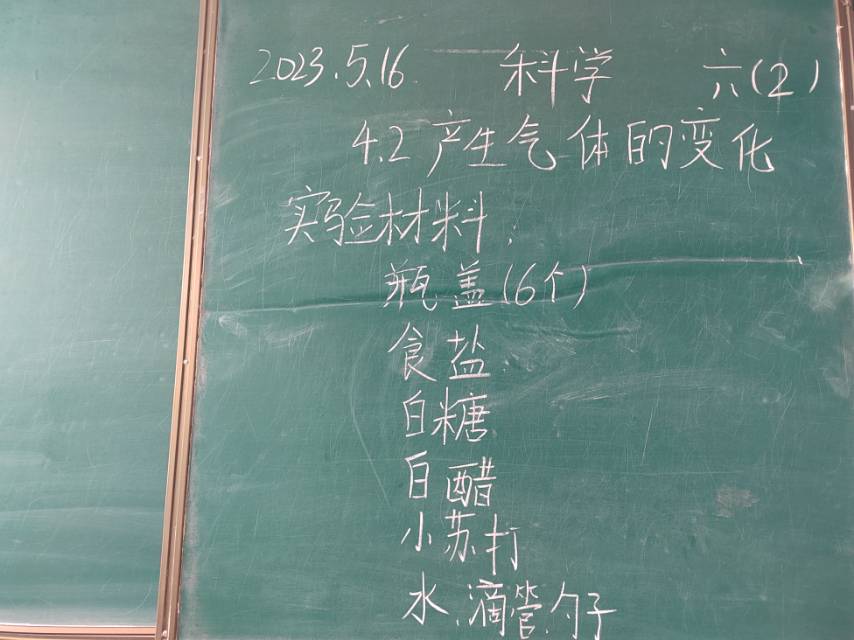 2023.5.16 科学 六(2)
4.2 产生气体的变化
实验材料:
瓶盖(6个)
食盐
白糖
白醋
小苏打
水、滴管、勺子